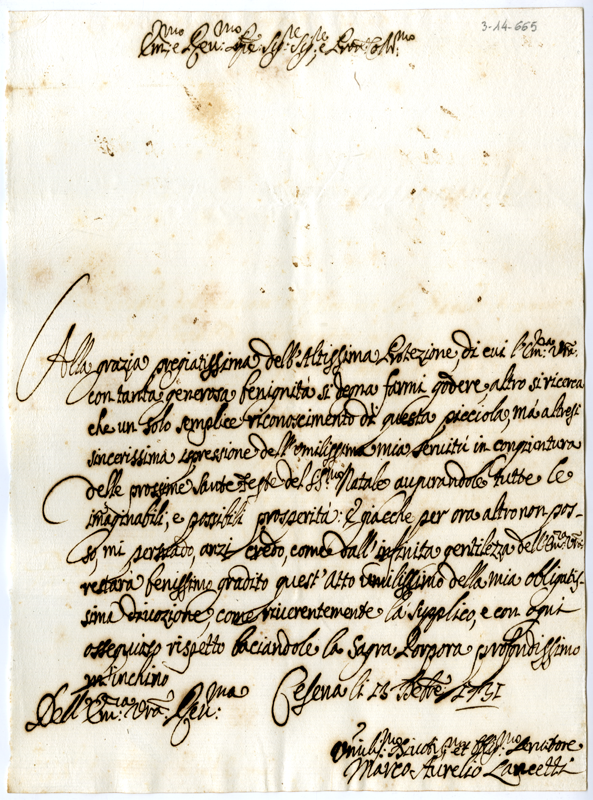 3-14-665
Em:mo e Rev:mo Sig:re Sig:re e Pron: Col:mo
Alla grazia pregiatissima dell'Altissima Protezione, di cui l'Em:za Vra:
con tanta generosa benignità si degna farmi godere altro si ricerca
che un solo semplice riconoscimento di questa picciola, mà altresì
sincerissima espressione dell'umilissima mia servitù in congiontura
delle prossime Sante Feste del SS:mo Natale augurandole tutte le
imaginabili, e possibili prosperità: E giacche per ora altro non pos-
so, mi persuado, anzi credo, come dall'infinita gentilezza dell'Em:za Vra:
restarà benissimo gradito quest'Atto umilissimo della mia obligatis-
sima divozione, come riverentemente la supplico, e con ogni
ossequioso rispetto baciandole la Sagra Porpora profondissimo
m'inchino
Dell'Em:za Vra: Rev:ma Cesena li 15 Xbre 1731
Umil:mo Divot:mo et Oblig:mo Servitore
Marco Aurelio Lancetti